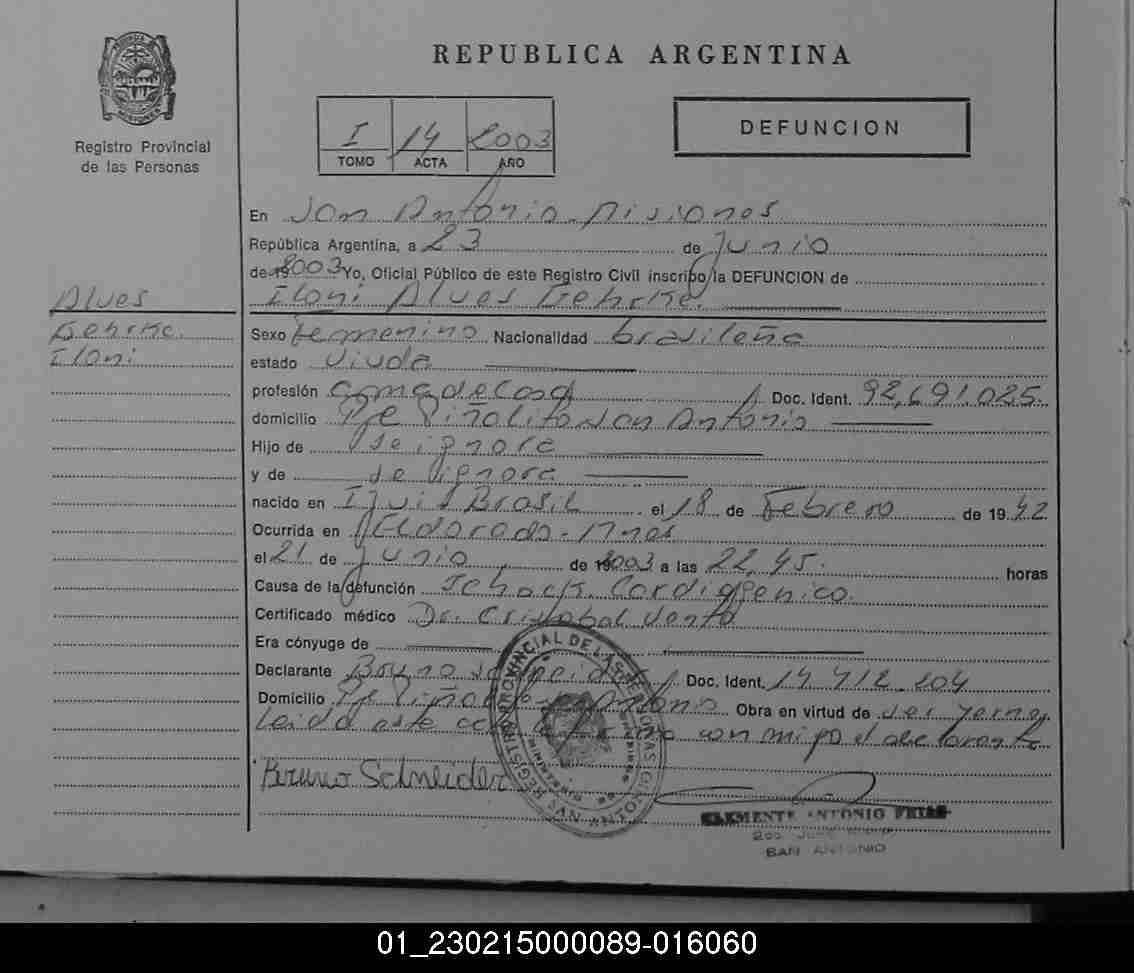 REPUBLICA ARGENTINA
MISIONES
Registro Provincial
de las Personas
I 14 2003
TOMO ACTA AÑO
DEFUNCION
En San Antonio. Misiones
República Argentina, a 23 de Junio
de 19 2003 Yo, Oficial Público de este Registro Civil inscribo la DEFUNCION de
Iloni Alves Gehrke.
Alves
Gehrke.
Iloni
Sexo femenino Nacionalidad brasileña
estado Viuda
profesión ama de casa Doc. Ident. 92,691.025.
domicilio Pje Piñalito San Antonio
Hijo de se ignora
y de se ignora
nacido en Ijui Brasil el 18 de Febrero de 1942
Ocurrida en Eldorado - Mnes
el 21 de Junio de 19 2003 a las 22,45. horas
Causa de la defunción Schock Cardiogenico.
Certificado médico Dr. Cristobal Vento
Era cónyuge de
Declarante Bruno Doc. Ident. 14 412.104
Domicilio Pje Obra en virtud de ser yerno,
leida este acta con migo el declarante
Bruno Schneider
REGISTRO PROVINCIAL DE LAS PERSONAS
MINISTERIO DE
CLEMENTE ANTONIO FRIAS
SAN ANTONIO
01_230215000089-016060